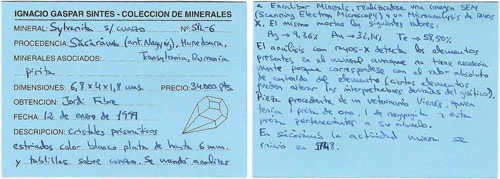 IGNACIO GASPAR SINTES - COLECCION DE MINERALES
MINERAL: Sylvanita s/ cuarzo Nº: SUL-6
PROCEDENCIA: Săcărîmb (ant. Nagyág), Hunedoara,
MINERALES ASOCIADOS: Transylvania, Rumania
pirita
DIMENSIONES: 6,8 x 4 x 1,8 cms. PRECIO: 34.000 Pts.
OBTENCION: Jordi Fabre
FECHA: 12 de enero de 1999
DESCRIPCION: cristales prismáticos
estriados color blanco plata de hasta 6 mm.
y tablillas sobre cuarzo. Se mandó analizar
a Excalibur Minerals, realizándose una imagen SEM
(Scanning Electron Microscopy) y un Microanálisis de Rayos
X. El mismo muestra los siguientes valores:
Ag → 9,36% Au → 32,14% Te → 58,50%
El análisis con rayos-X detecta los elementos
presentes, en el mineral aunque no tiene necesaria-
mente porque corresponderse con el valor absoluto
de contenido del elemento (otros elementos
pueden alterar las interpretaciones derivadas del gráfico).
Pieza procedente de un veterinario Vienés, quien
tenía 1 pieza de oro, 1 de nagyagita y esta
pieza pertenecientes a su abuelo.
En Săcărîmb la actividad minera se
inició en 1748.